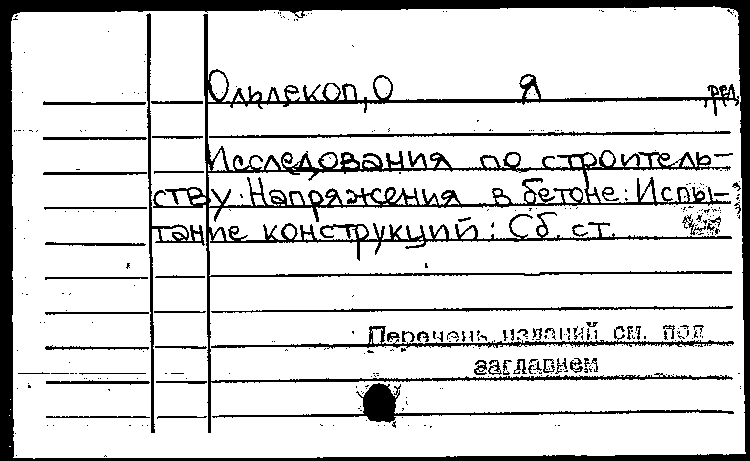 Ольлекоп, О Я ,ред.
Исследования по строитель-
ству. Напряжения в бетоне: Испы-
тание конструкций: Сб. ст.
Перечень изданий см. под
заглавием